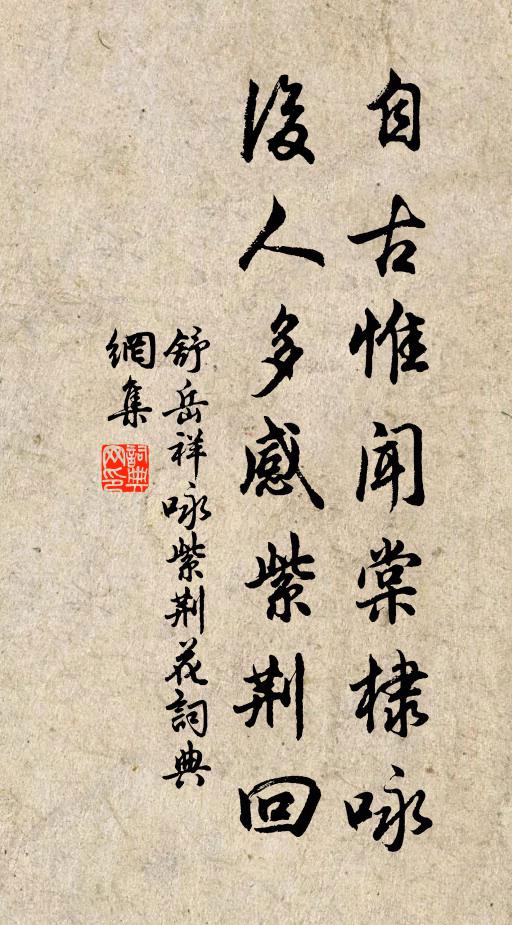 自古惟闻棠棣咏
後人多感紫荆回
舒岳祥咏紫荆花詞典
網集
詞典网印